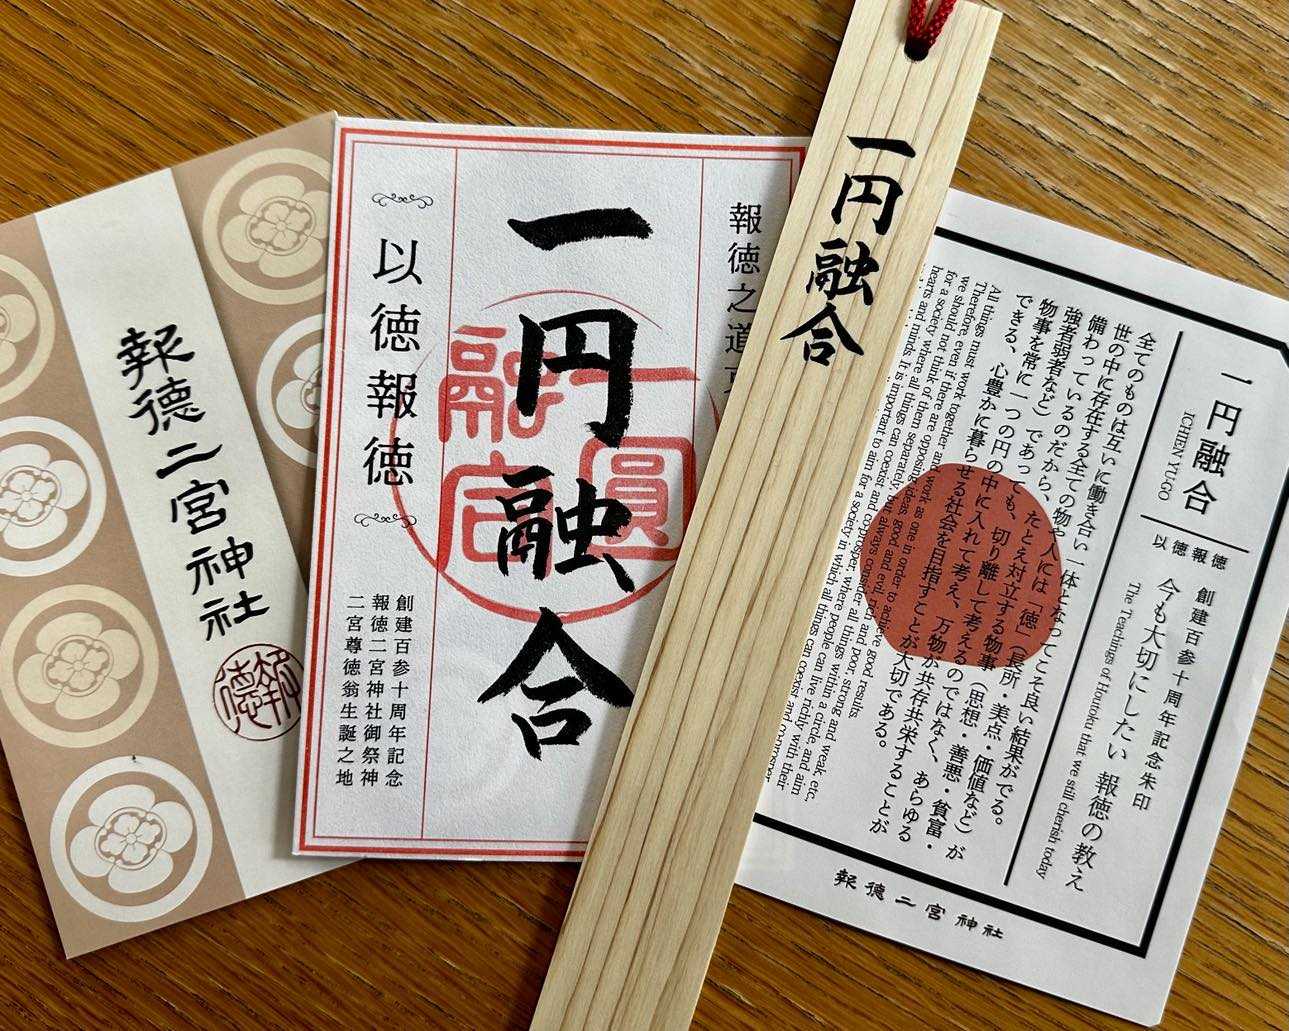 報徳二宮神社
報徳
報徳之道
一円融合
一圓融合
以徳報徳
創建百参十周年記念
報徳二宮神社御祭神
二宮尊徳翁生誕之地
一円融合
一円融合
ICHIEN YUGO
以徳報徳
創建百参十周年記念朱印
今も大切にしたい 報徳の教え
The Teachings of Houtoku that we still cherish today
全てのものは互いに働き合い一体となってこそ良い結果がでる。
世の中に存在する全ての物や人には「徳」（長所・美点・価値など）が
備わっているのだから、たとえ対立する物事（思想・善悪・貧富・
強者弱者など）であっても、切り離して考えるのではなく、あらゆる
物事を常に一つの円の中に入れて考え、万物が共存共栄することが
できる、心豊かに暮らせる社会を目指すことが大切である。
All things must work together and work as one in order to achieve good results.
Therefore, even if there are opposing ideas, good and evil, rich and poor, strong and weak, etc.
we should not think of them separately, but always consider all things within a circle, and aim
for a society where all things can coexist and coprosper, where people can live richly with their
hearts and minds. It is important to aim for a society in which all things can coexist and coprosper
報徳二宮神社